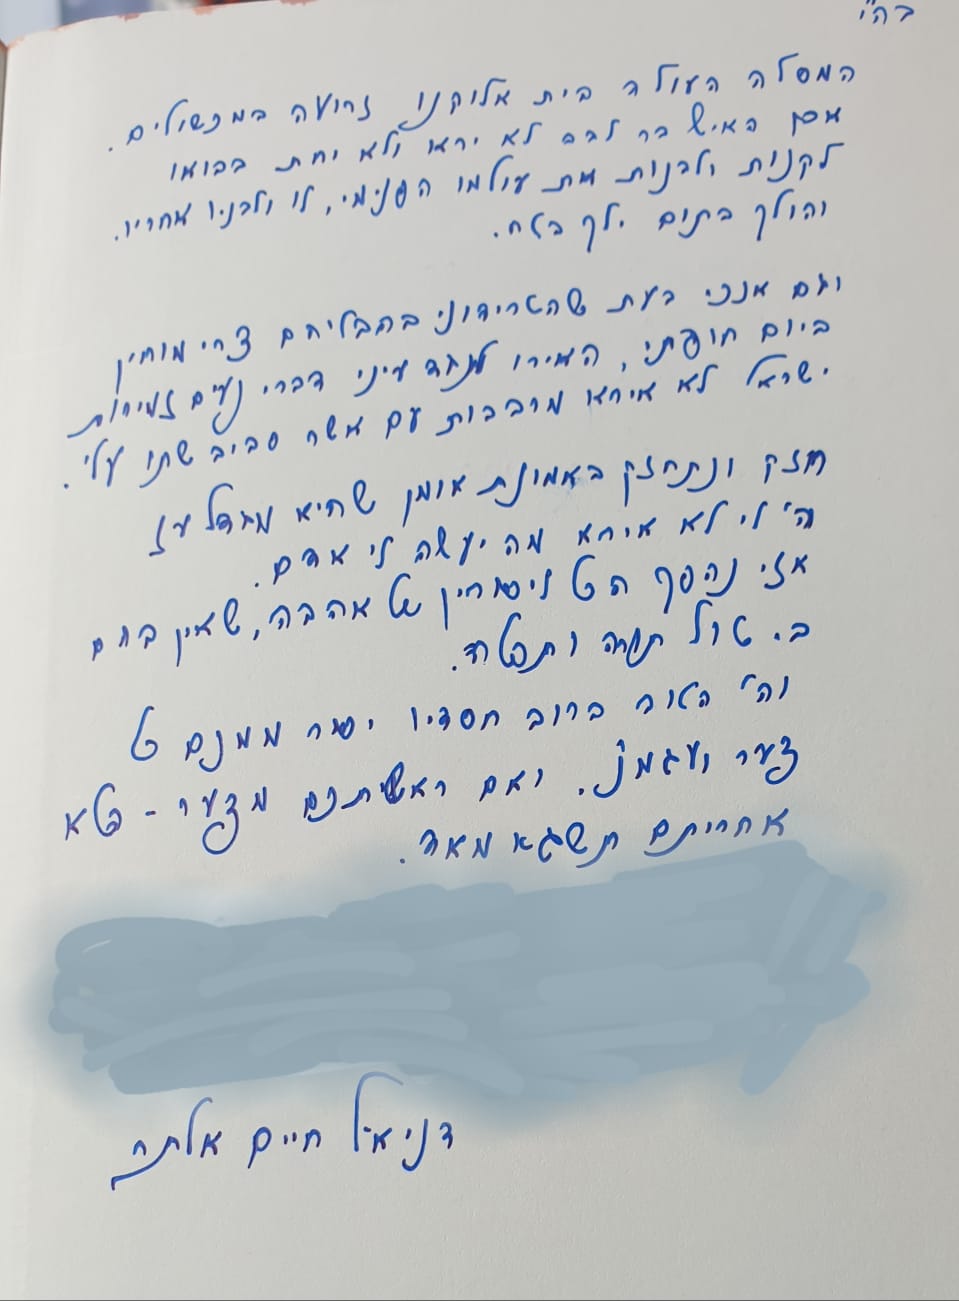 בה"י
המסלה העולה בית אלוקנו זרועה במכשולים.
אכן האיש בר לבב לא ירא ולא יחת בבואו
לקנות ולבנות את עולמו הפנימי, לו ולבניו אחריו.
והולך בתום ילך בטח.
וגם אנכי בעת שהטרידוני בהבליהם צרי מוחין
ביום חופתי, האירו לנגד עיני דברי נעים זמירות
ישראל לא אירא מרבבות עם אשר סביב שתו עלי.
חזק ונתחזק באמונת אומן שהיא מגדל עז
ה' לי לא אירא מה יעשה לי אדם.
אזי נהפך הכל ליסורין של אהבה, שאין בהם
ביטול תורה ותפילה.
וה' הטוב ברוב חסדיו יסיר ממנם כל
צער ועגמ"נ. ואם ראשיתכם מצער - פלא
אחריתם תשגא מאד.
דניאל חיים אלתר